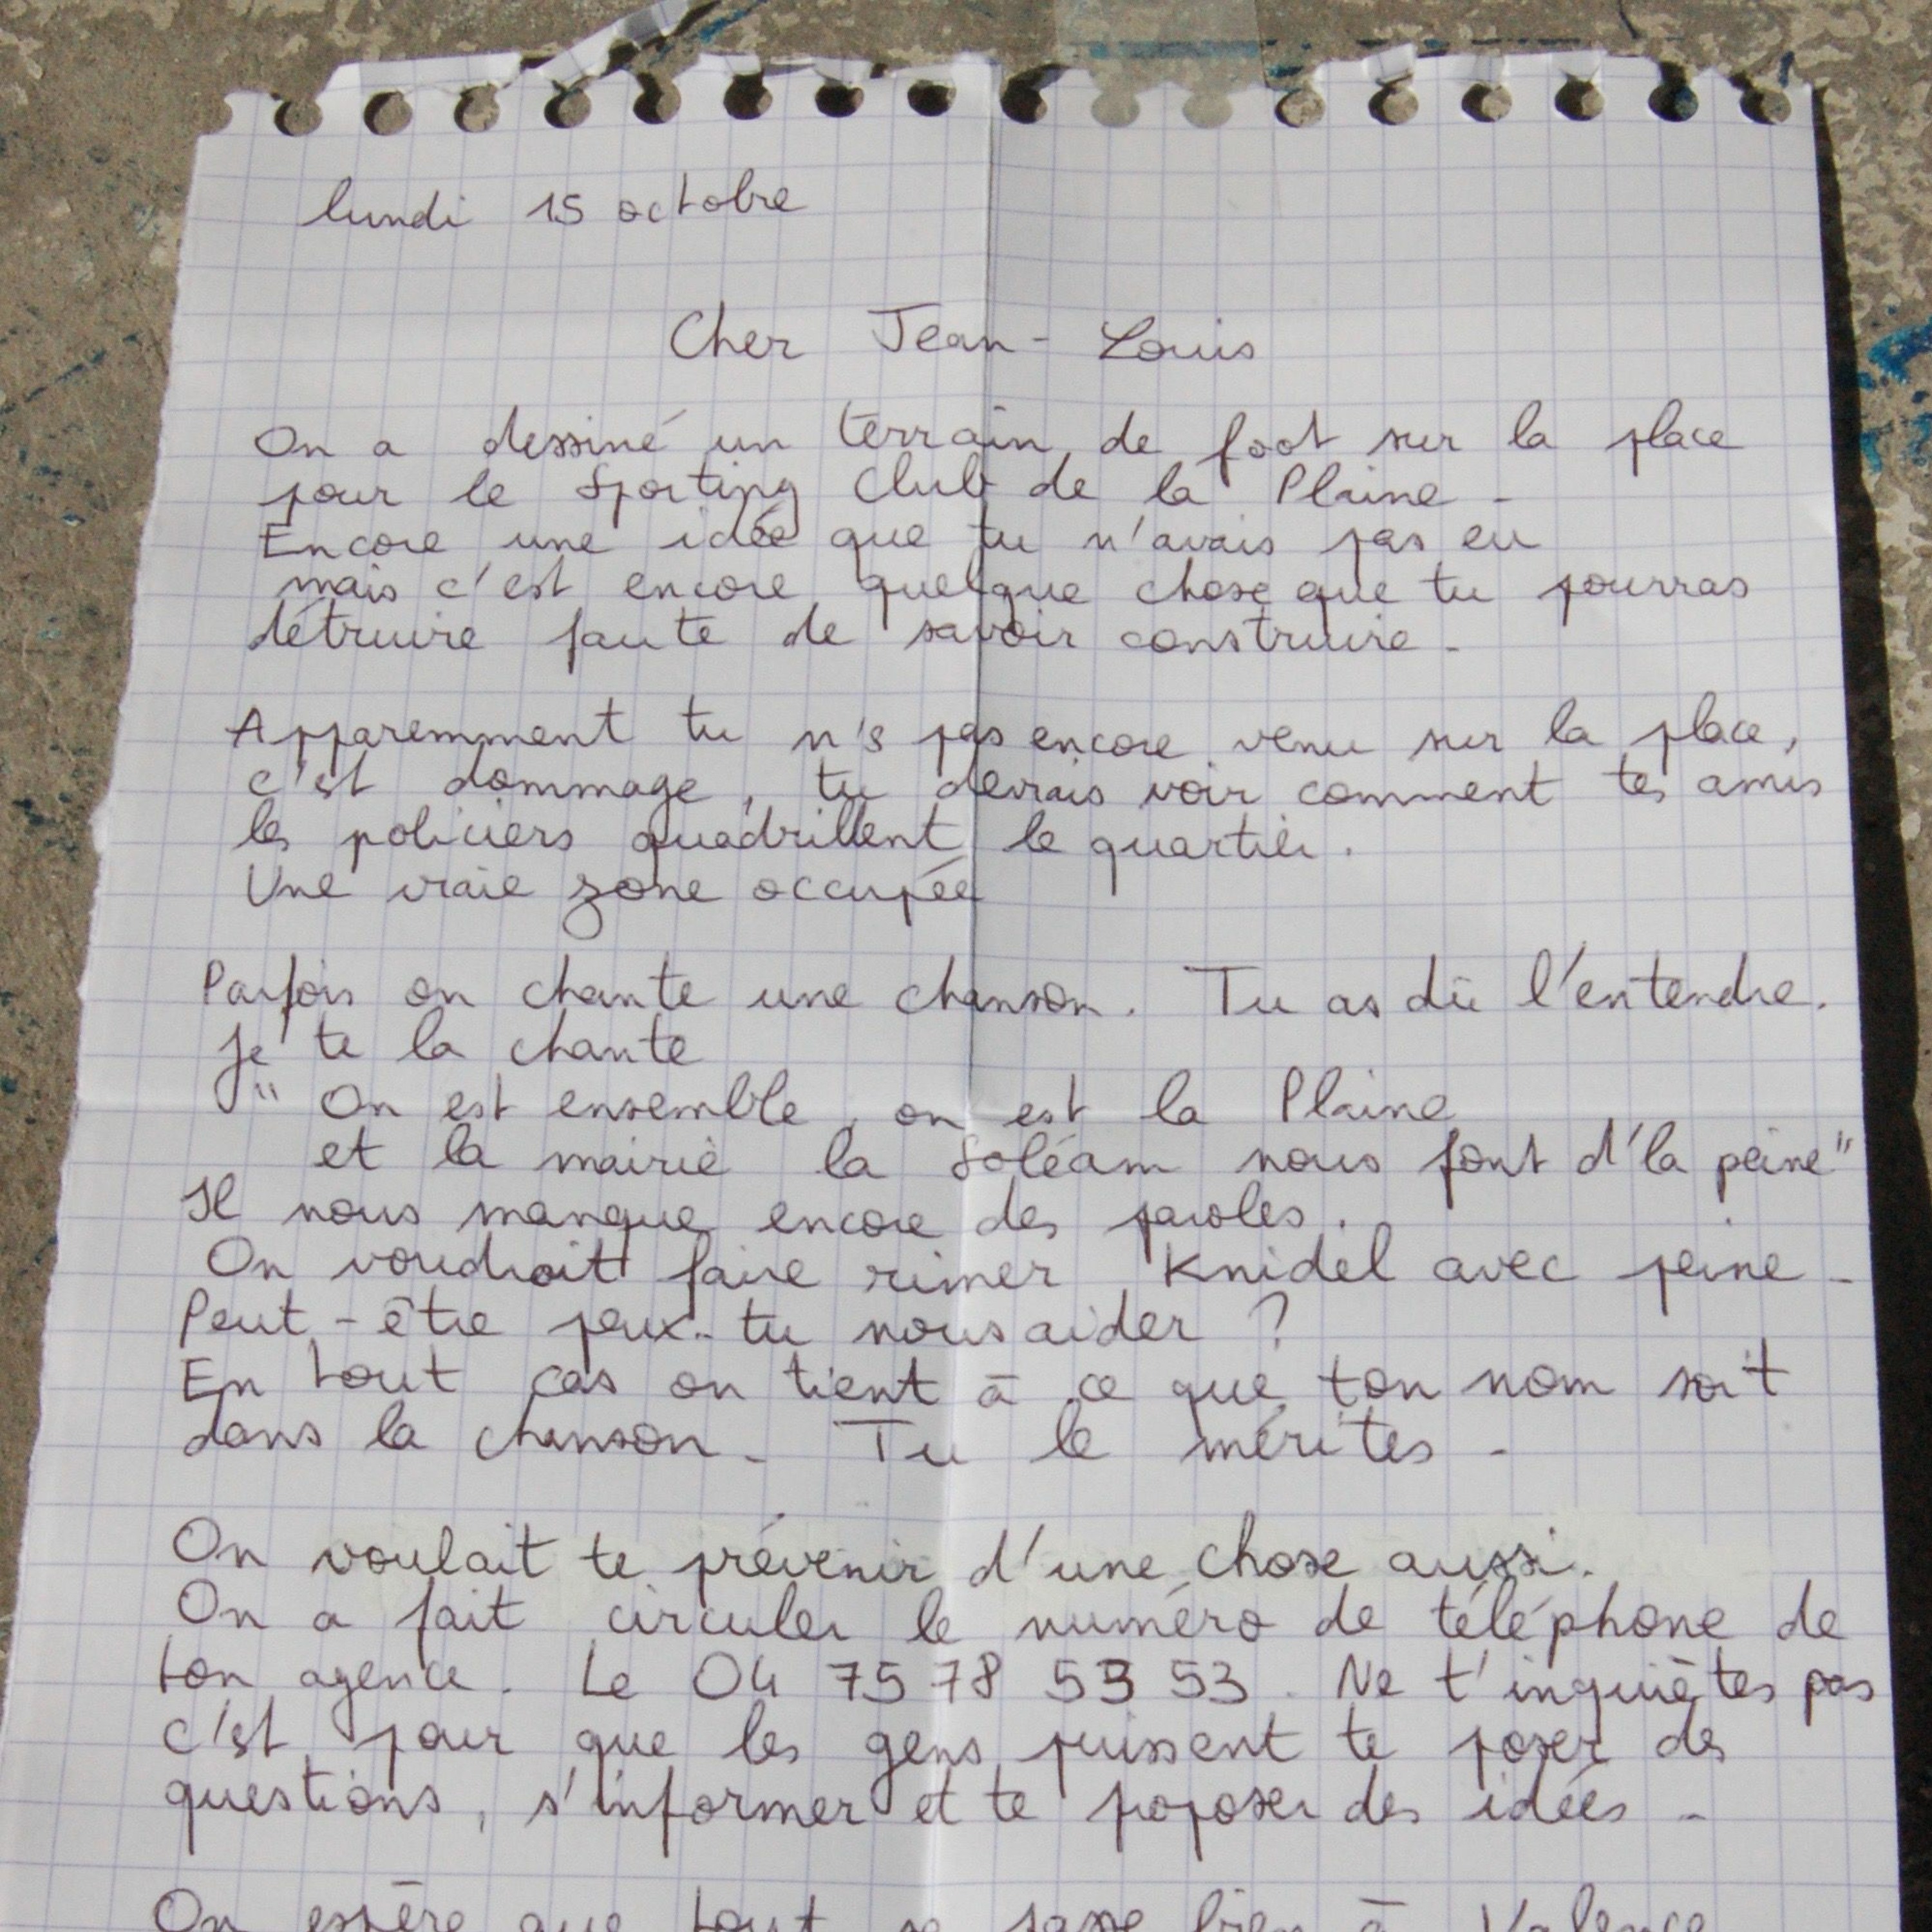 lundi 15 octobre
Cher Jean-Louis
On a dessiné un terrain de foot sur la place
pour le Sporting Club de la Plaine -
Encore une idée que tu n'avais pas eu
mais c'est encore quelque chose que tu pourras
détruire faute de savoir construire -
Apparemment tu n's pas encore venu sur la place,
c'est dommage, tu devrais voir comment tes amis
les policiers quadrillent le quartier.
Une vraie zone occupée
Parfois on chante une chanson. Tu as dû l'entendre.
Je te la chante
" On est ensemble, on est la Plaine
et la mairie la Soléam nous font d'la peine"
Il nous manque encore des paroles.
On voudrait faire rimer Knidel avec peine -
Peut-être peux-tu nous aider ?
En tout cas on tient à ce que ton nom soit
dans la chanson. Tu le mérites -
On voulait te prévenir d'une chose aussi.
On a fait circuler le numéro de téléphone de
ton agence. Le 04 75 78 53 53. Ne t'inquiètes pas
c'est pour que les gens puissent te poser des
questions, s'informer et te proposer des idées -
On espère que tout se passe bien à Valence